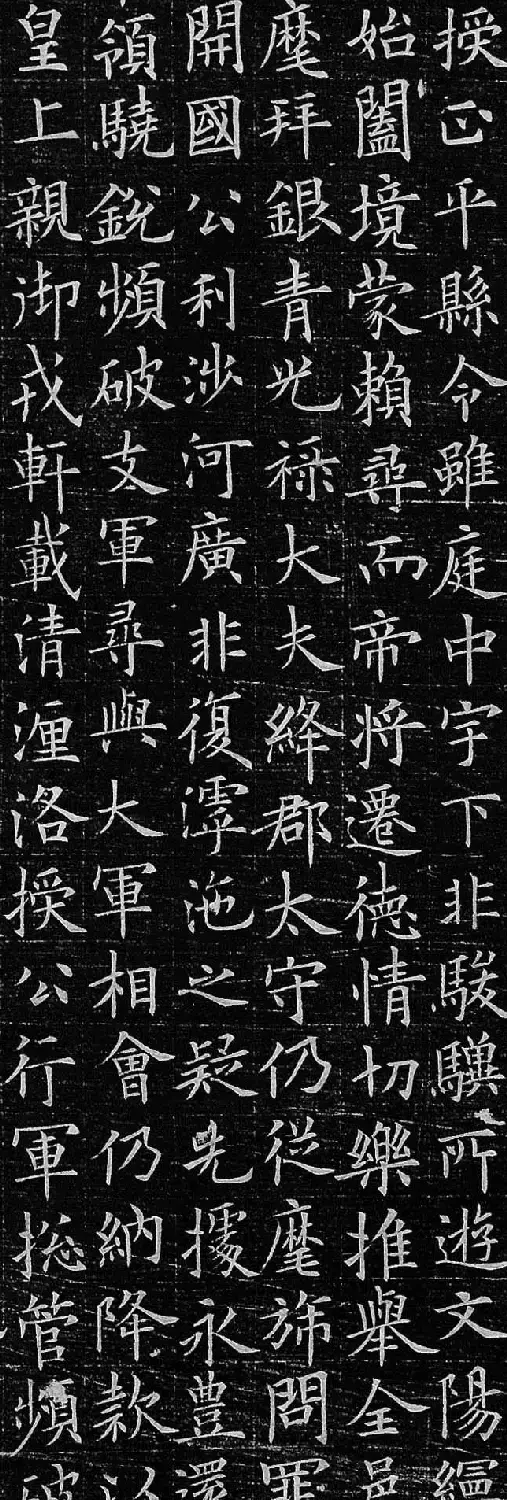 授正平縣令雖庭中宇下非駿驥所遊文陽緼
始闔境蒙賴尋而帝将遷德情切樂推舉全邑
麾拜銀青光禄大夫絳郡太守仍從麾旆問罪
開國公利涉河廣非復滹沲之疑先據永豊還
領驍銳頻破支軍尋與大軍相會仍納降款以
皇上親御戎軒載清湹洛授公行軍揔管頻破